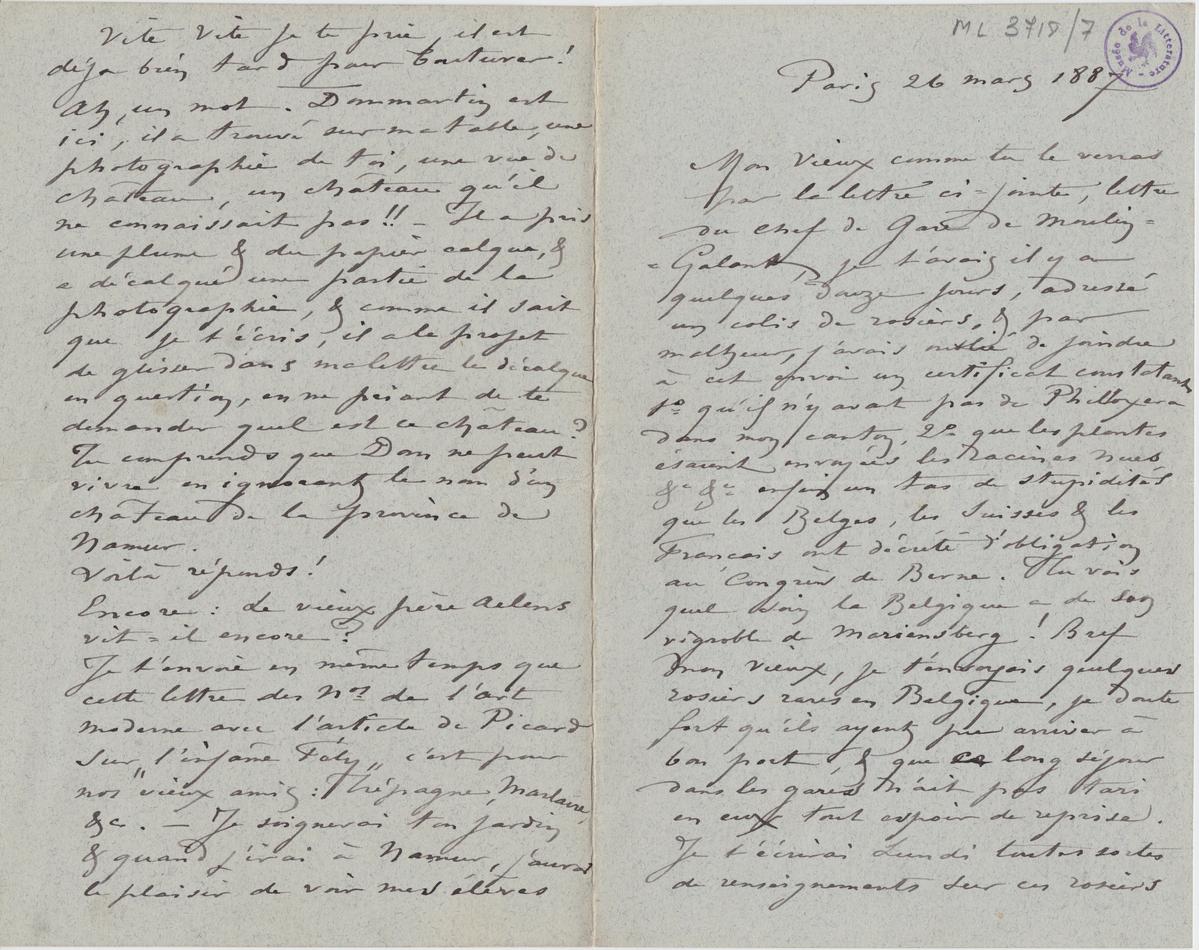 ML 3718/7
Musée de la Littérature
Paris 26 mars 1887
Mon vieux comme tu le verras
par la lettre ci-jointe, lettre
du chef de Gare de Moulin=
=Galant, je t'avais il y a
quelques douze jours, adressé
un colis de rosiers, & par
malheur, j'avais oublié de joindre
à cet envoi un certificat constatant
1º qu'il n'y avait pas de Philloxera
dans mon canton, 2º que les plantes
étaient envoyées les racines nues
&ª &ª enfin un tas de stupidités
que les Belges, les Suisses & les
Francais ont décrété d'obligation
au Congrès de Berne. Tu vois
quel soin la Belgique a de son
vignoble de Mariensberg! Bref
mon vieux, je t'envoyais quelques
rosiers rares en Belgique, je doute
fort qu'ils ayent pu arriver à
bon port, & que ce long séjour
dans les gares n'ait pas tari
en eux tout espoir de reprise.
Je t'écrirai Lundi toutes sortes
de renseignements sur ces rosiers
Vite Vite je te prie, il est
déja bien tard pour bouturer!
Ah, un mot. Dommartin est
ici, il a trouvé sur ma table, une
photographie de toi, une vue de
château, un château qu'il
ne connaissait pas!! – Il a pris
une plume & du papier calque, &
a décalqué une partie de la
photographie, & comme il sait
que je t'écris, il a le projet
de glisser dans ma lettre le décalque
en question, en me priant de te
demander quel est ce château?
Tu comprends que Dom ne peut
vivre en ignorant le nom d'un
château de la province de
Namur.
Voilà réponds!
Encore: Le vieux père Aelens
vit=il encore?
Je t'envoie en même temps que
cette lettre des Nos de l'art
moderne avec l'article de Picard
sur "l'infâme Fély" c'est pour
nos vieux amis: Trépagne, Marlaire,
&c. – Je soignerai ton jardin
& quand j'irai à Namur, j'aurai
le plaisir de voir mes élèves